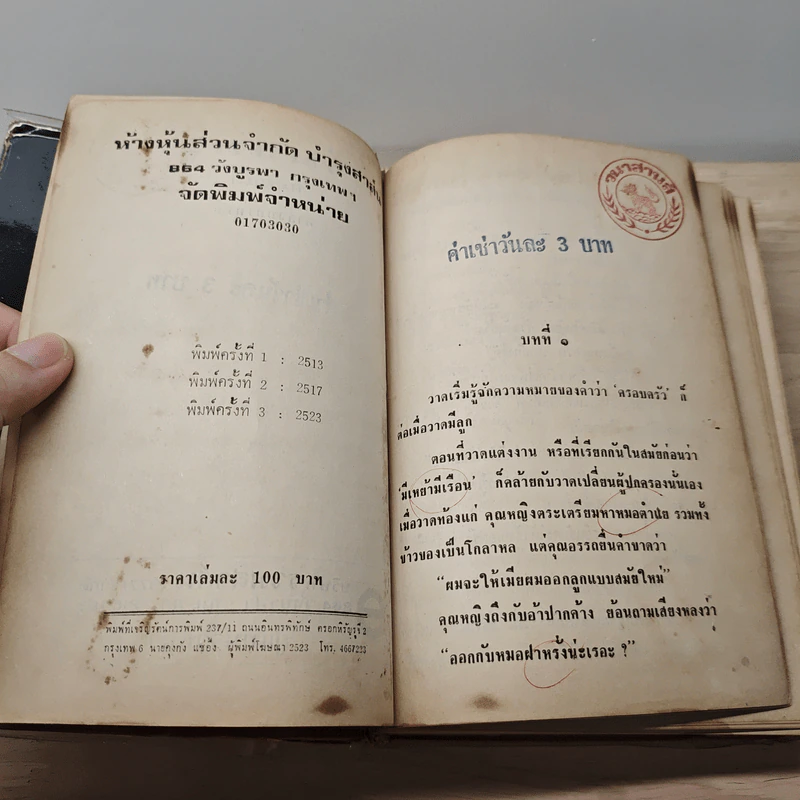 ห้างหุ้นส่วนจำกัด บำรุงสาส์น
864 วังบูรพา กรุงเทพฯ
จัดพิมพ์จำหน่าย
01703030
พิมพ์ครั้งที่ 1 : 2513
พิมพ์ครั้งที่ 2 : 2517
พิมพ์ครั้งที่ 3 : 2523
ราคาเล่มละ 100 บาท
พิมพ์ที่เจริญรัตน์การพิมพ์ 237/11 ถนนอินทรพิทักษ์ ตรอกหิรัญรูจี 2
กรุงเทพ 6 นายคุงกัง แซ่อึ้ง ผู้พิมพ์โฆษณา 2523 โทร. 4667233
ค่าเช่าวันละ 3 บาท
บทที่ ๑
วาดเริ่มรู้จักความหมายของคำว่า 'ครอบครัว' ก็
ต่อเมื่อวาดมีลูก
ตอนที่วาดแต่งงาน หรือที่เรียกกันในสมัยก่อนว่า
'มีเหย้ามีเรือน' ก็คล้ายกับวาดเปลี่ยนผู้ปกครองนั่นเอง
เมื่อวาดท้องแก่ คุณหญิงตระเตรียมหาหมอตำแย รวมทั้ง
ข้าวของเป็นโกลาหล แต่คุณอรรถยื่นคำขาดว่า
"ผมจะให้เมียผมออกลูกแบบสมัยใหม่"
คุณหญิงถึงกับอ้าปากค้าง ย้อนถามเสียงหลงว่า
"ออกกับหมอฝาหรั้งน่ะเรอะ ?"